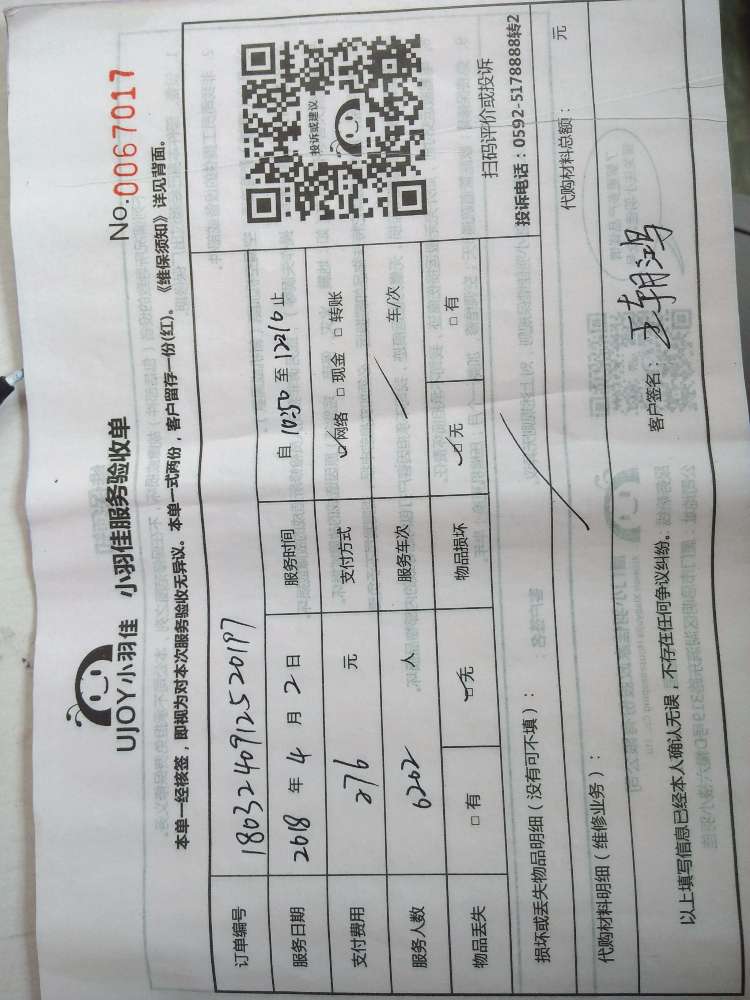 UJOY小羽佳 小羽佳服务验收单
No.0067017
本单一经核签，即视为对本次服务验收无异议。本单一式两份，客户留存一份(红)。《维保须知》详见背面。
订单编号 1803240912520197
投诉或建议
服务日期 2018 年 4 月 2 日 服务时间 自 10:50 至 12210 止
支付费用 276 元 支付方式 ☑网络 □现金 □转账
服务人数 6202 人 服务车次 / 车/次
物品丢失 □有 ☑无 物品损坏 ☑无 □有
扫码评价或投诉
投诉电话：0592-5178888转2
损坏或丢失物品明细（没有可不填）：
代购材料明细（维修业务）： 代购材料总额： 元
以上填写信息已经本人确认无误，不存在任何争议纠纷。 客户签名：王朝鸿